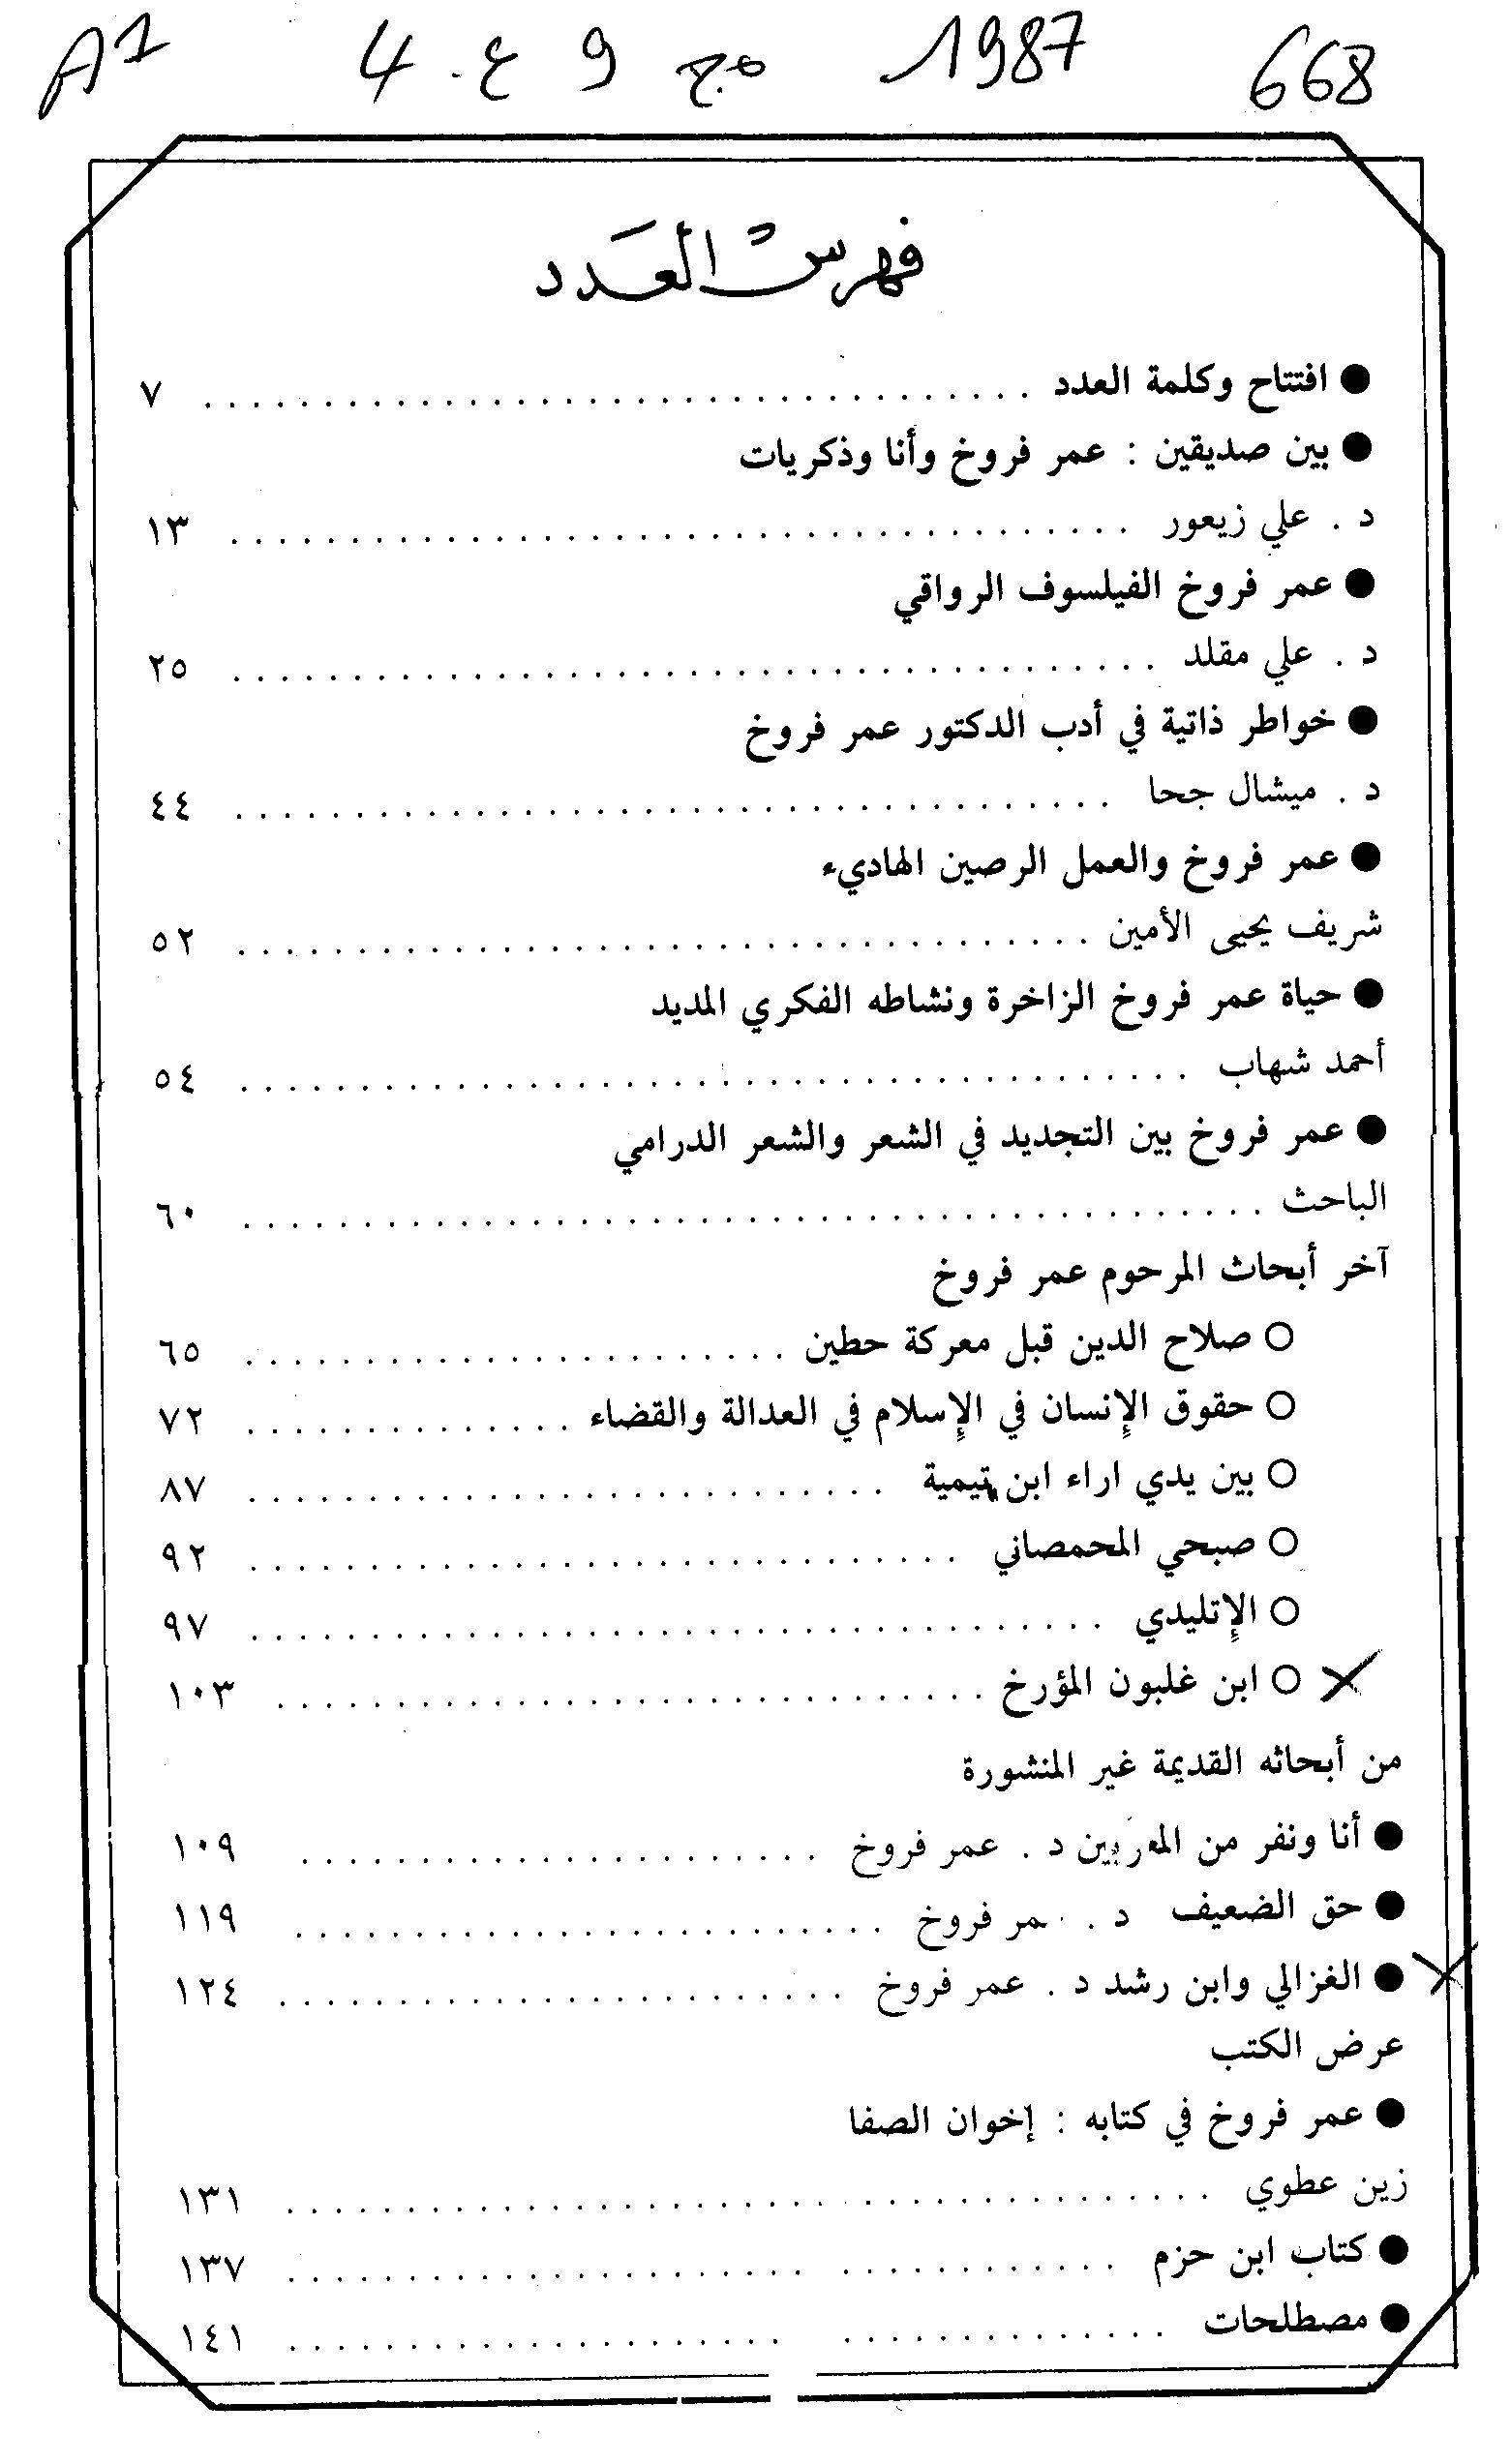 668 1987 مج 9 ع. 4 A1
فهرس العدد
● افتتاح وكلمة العدد . . . . . . . . . . ٧
● بين صديقين : عمر فروخ وأنا وذكريات
د . علي زيعور . . . . . . . . . . ١٣
● عمر فروخ الفيلسوف الرواقي
د . علي مقلد . . . . . . . . . . ٢٥
● خواطر ذاتية في أدب الدكتور عمر فروخ
د . ميشال جحا . . . . . . . . . . ٤٤
● عمر فروخ والعمل الرصين الهاديء
شريف يحيى الأمين . . . . . . . . . . ٥٢
● حياة عمر فروخ الزاخرة ونشاطه الفكري المديد
أحمد شهاب . . . . . . . . . . ٥٤
● عمر فروخ بين التجديد في الشعر والشعر الدرامي
الباحث . . . . . . . . . . ٦٠
آخر أبحاث المرحوم عمر فروخ
○ صلاح الدين قبل معركة حطين . . . . . . . . . . ٦٥
○ حقوق الإنسان في الإسلام في العدالة والقضاء . . . . . . . . . . ٧٢
○ بين يدي اراء ابن تيمية . . . . . . . . . . ٨٧
○ صبحي المحمصاني . . . . . . . . . . ٩٢
○ الإتليدي . . . . . . . . . . ٩٧
○ ابن غلبون المؤرخ . . . . . . . . . . ١٠٣
من أبحاثه القديمة غير المنشورة
● أنا ونفر من المعربين د . عمر فروخ . . . . . . . . . . ١٠٩
● حق الضعيف د . عمر فروخ . . . . . . . . . . ١١٩
● الغزالي وابن رشد د . عمر فروخ . . . . . . . . . . ١٢٤
عرض الكتب
● عمر فروخ في كتابه : إخوان الصفا
زين عطوي . . . . . . . . . . ١٣١
● كتاب ابن حزم . . . . . . . . . . ١٣٧
● مصطلحات . . . . . . . . . . ١٤١